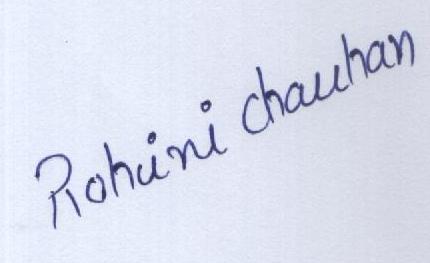 Rohini chauhan